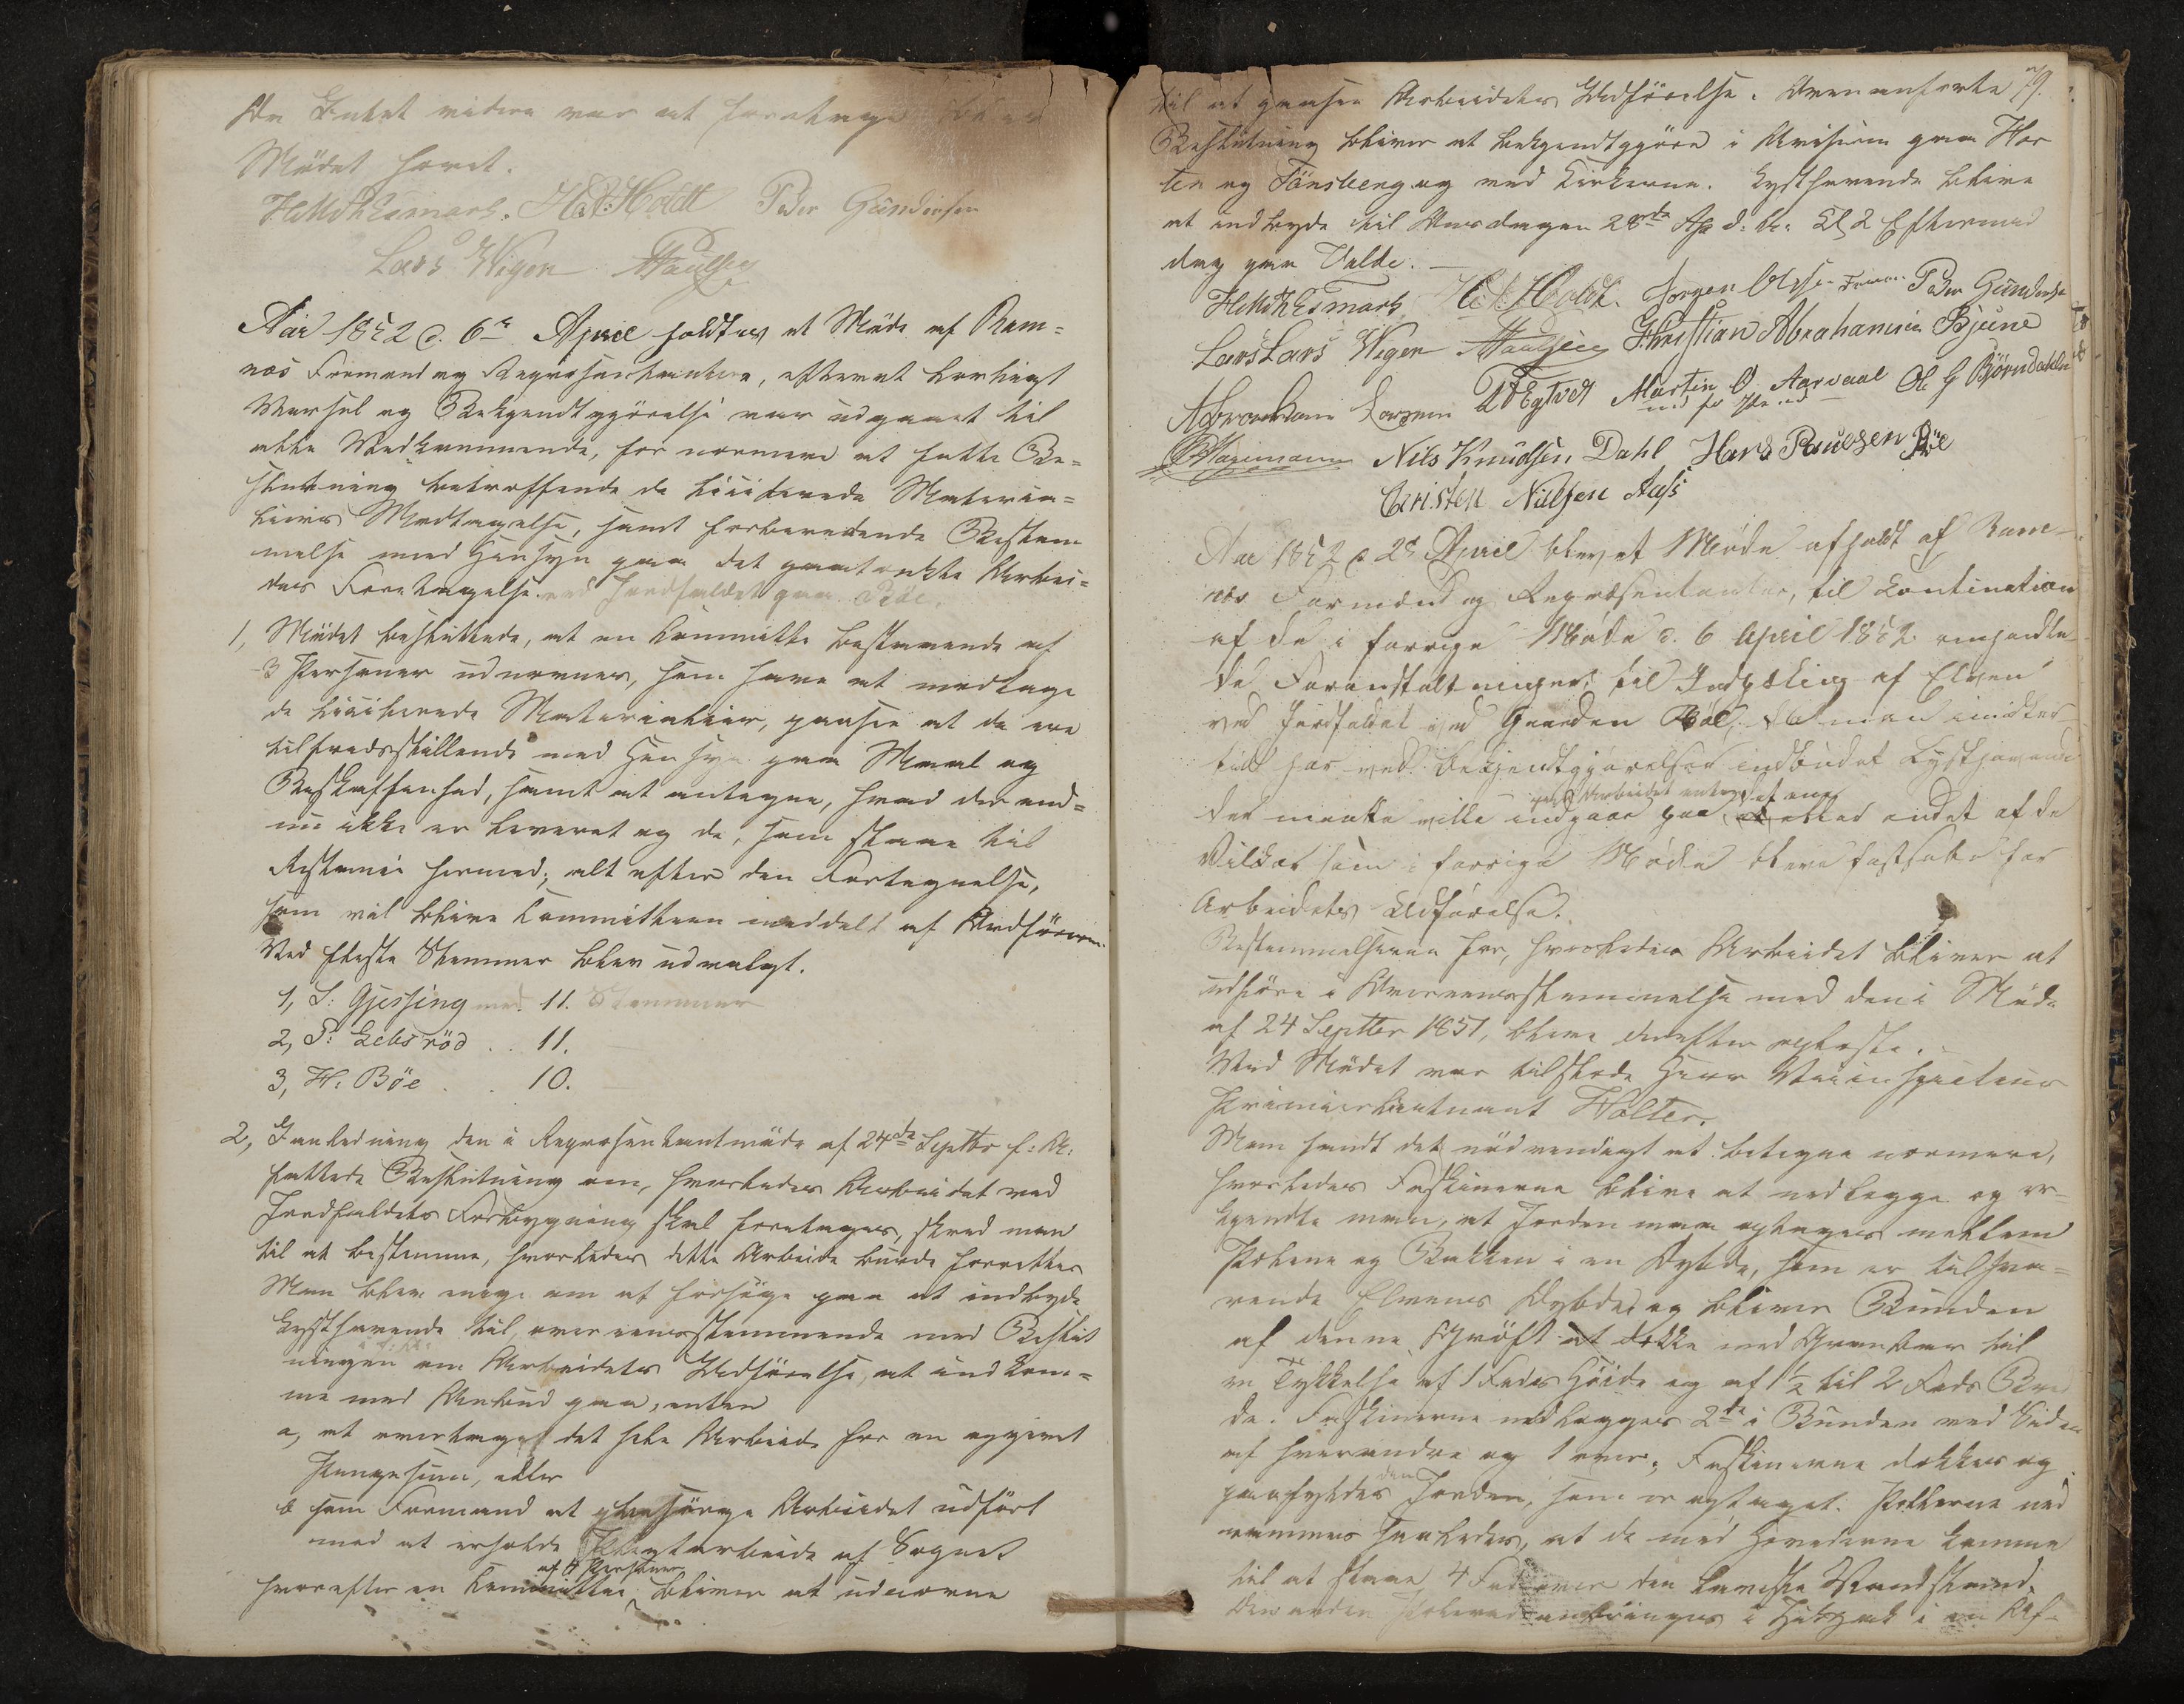 Da Intet videre var at foretage blev
Mödet hævet.
HMThEsmark. H.A.Holdt Peder Gundersen
Lars Wigen APaulsen
Aar 1852 d. 6te April holdtes et Möde af Ram=
næs Formænd og Repræsentantere, efterat lovligt
Varsel og Bekjendtgjörelse var udgaaet til
alle Vedkommende, for nærmere at fatte Be=
slutning betræffende de liciterede Materia=
liers Modtagelse, samt forberedende Bestem
melse med Hensyn paa det paatænkte Arbei=
des Foretagelse ved Jordfaldet paa Böe.
1, Mödet besluttede, at en Committe bestaaende af
3 Personer udnævnes, som have at modtage
de liciterede Materialier, paasee at de ere
tilfredsstillende med Hensyn paa Maal og
Beskaffenhed, samt at antegne, hvad der end=
nu ikke er leveret og de, som staae til
Restance hermed; alt efter den Fortegnelse,
som vil blive Committeen meddelt af Ordföreren.
Ved fleste Stemmer blev udvalgt.
1, S: Gjessing med 11. Stemmer
2, P: Lebsröd .. 11.
3, H: Böe . . 10.
2, I Anledning den i Repræsentantmöde af 24de Septbr f: A:
fattede Beslutning om, hvorledes Arbeidet ved
Jordfaldets Forbygning skal foretages, skred man
til at bestemme, hvorledes dette Arbeide burde forrettes
Man blev enige om at forsöge paa at indbyde
Lysthavende til, overeensstemmende med Beslut
ningen om Arbeidets Udförelse, at indkom=
me med Anbud paa, enten
a, at overtage det hele Arbeide for en opgivet
Pengesum, eller
b som Formand at besörge Arbeidet udfört
med at erholde Pligtarbeide af Sognet
af 4 Personer
hvorefter en Committee bliver at udnævne
79.
til at paasee Arbeidets Udförelse. Ovenanförte
Beslutning bliver at bekjendtgjöre i Aviserne paa Hor
ten og Tönsberg og ved Kirkerne. Lysthavende blive
at indbyde til Onsdagen 28de Ap d: A: Kl 2 Eftermid
dag paa Valde. —
HMThEsmark H.A.Holdt. Jorgen Olsen Peder Gundersen
Lars Lars Wigen APaulsen Khristian Abrahamsen Bjune
Abraham Larsen Martin O. Aarvaal Ole G Björndahlen
med for Pen
Wagemann Nils Knudsen Dahl Hans Paulsen Böe
Cristen Nielsen Aass
Aar 1852 d 28 April blev et Möde afholdt af Ram=
næs Formænd og Repræsentanter, til Continuation
af de i forrige Möde d. 6 April 1852 omhandle
de Foranstaltninger til Indpæling af Elven
ved Jordfaldet ved Gaarden Böe, da man imidler
tid har ved Bekjendtgjörelser indbudet Lysthavende
Arbeidet
der maatte ville indgaae paa et eller andet af de
Vilkaar som i forrige Möde bleve fastsatte for
Arbeidets Udförelse.
Bestemmelserne for, hvorledes Arbeidet bliver at
udföre i Overeensstemmelse med den i Möde
af 24 Septbr 1851, bleve derefter oplæste.
Ved Mödet var tilstede Herr Veiinspecteur
Premierlieutnant Holter.
Man fandt det nödvendigt at betegne nærmere,
hvorledes Faskinerne blive at nedlægge og er=
kjendte man, at Jorden maa optages mellem
Pælene og Bakken i en Dybde, som er tilsva=
rende Elvens Dybde, og bliver Bunden
af denne Gröft at dække med Granbar til
en Tykkelse af 1 Fods Höide og af 1 1/2 til 2 Fods Bred
de. Faskinerne nedlægges 2de i Bunden ved Siden
af hverandre og 1 over; Faskinerne dækkes og
den
paafyldes Jorden, som er optaget. Pælene ned
rammes saaledes, at de med Hovederne komme
til at staae 4 Fod over den laveste Vandstand.
Den anden Pælerad anbringes i Zikzak i en Af-